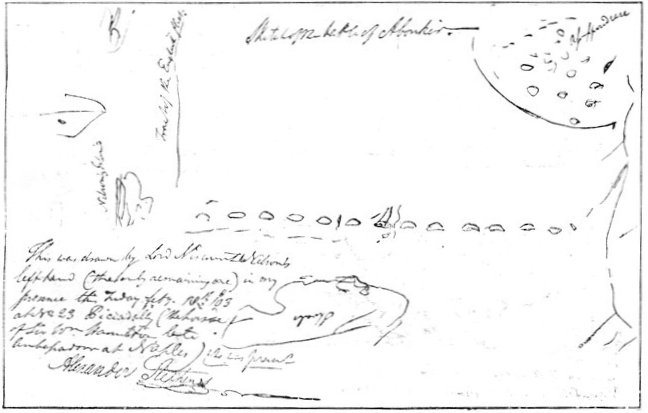 B
Sketch of the battle of Aboukir
Track of the English fleet
Nelson's Island
This was drawn by Lord Viscount Nelson's
left hand (the only remaining one) in my
presence this Friday feby. 18th '03
at No 23 Piccadilly (the house
of Sir Wm Hamilton late
Ambassador at Naples) who is present
Alexander Stephens
Shoals